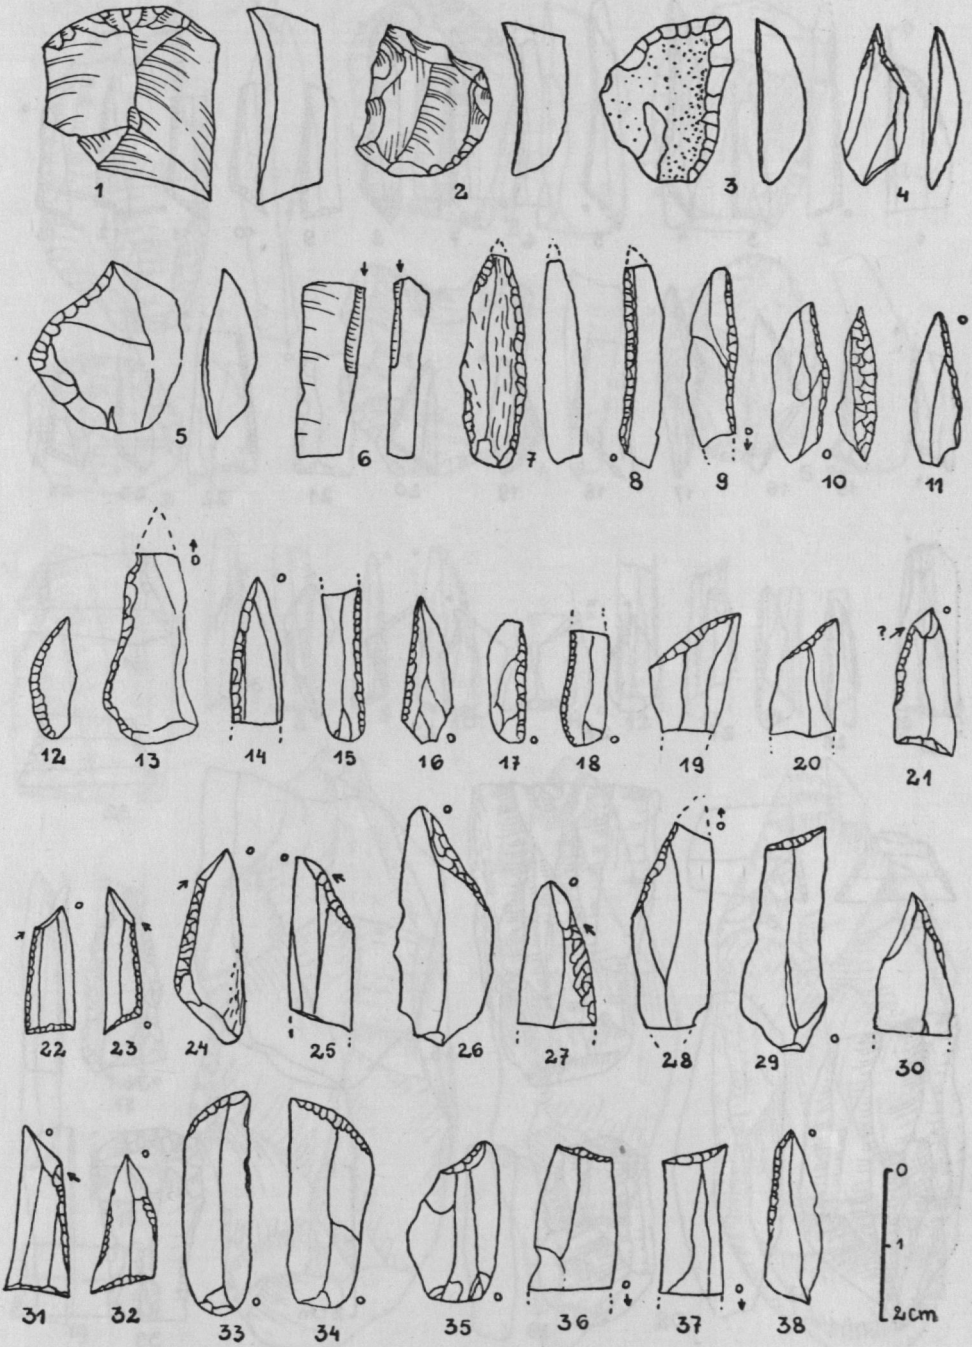 1 2 3 4
5 6 7 8 9 10 11
12 13 14 15 16 17 18 19 20 21
?
22 23 24 25 26 27 28 29 30
31 32 33 34 35 36 37 38
0
1
2cm